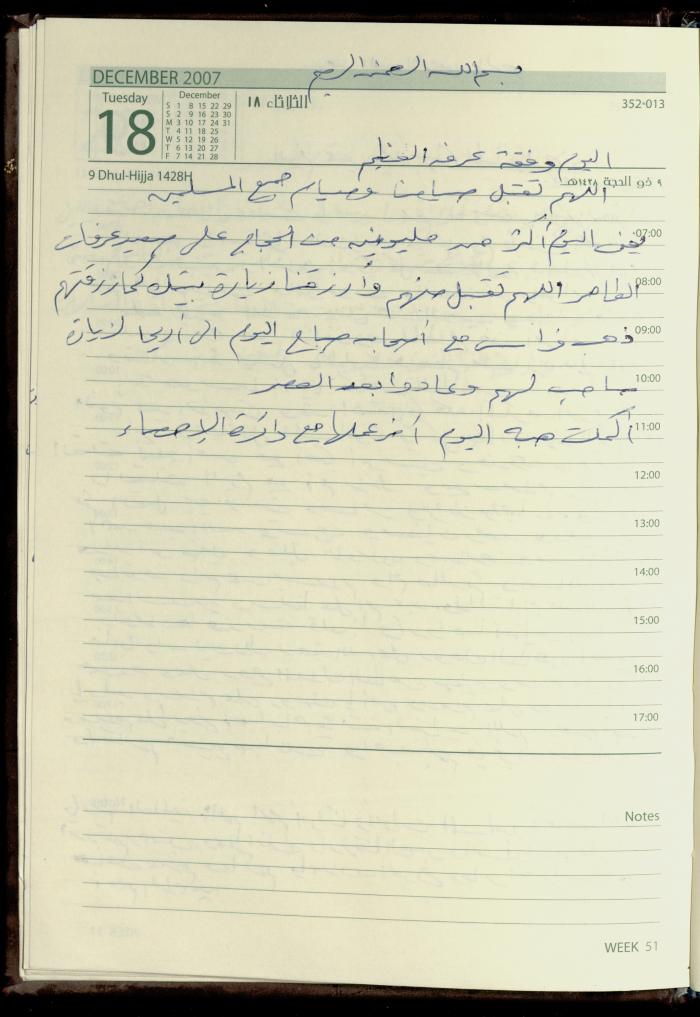 بسم الله الرحمن الرحيم
DECEMBER 2007
Tuesday
18
December
S 1 8 15 22 29
S 2 9 16 23 30
M 3 10 17 24 31
T 4 11 18 25
W 5 12 19 26
T 6 13 20 27
F 7 14 21 28
الثلاثاء ١٨
352-013
اليوم وقفة عرفه العظيم
9 Dhul-Hijja 1428H
٩ ذو الحجة ١٤٢٨هـ
اللهم تقبل صيامنا وصيام جميع المسلمين
07:00
يقف اليوم أكثر من مليونين من الحجاج على صعيد عرفات
08:00
الطاهر اللهم تقبل منهم وأرزقنا زيارة بيتك كما رزقتهم
09:00
ذهب فراس مع أصحابه صباح اليوم الى أريحا لزيارة
10:00
صاحب لهم وعادوا بعد العصر
11:00
أكملت هبه اليوم أخر عملها مع دائرة الإحصاء
12:00
13:00
14:00
15:00
16:00
17:00
Notes
WEEK 51